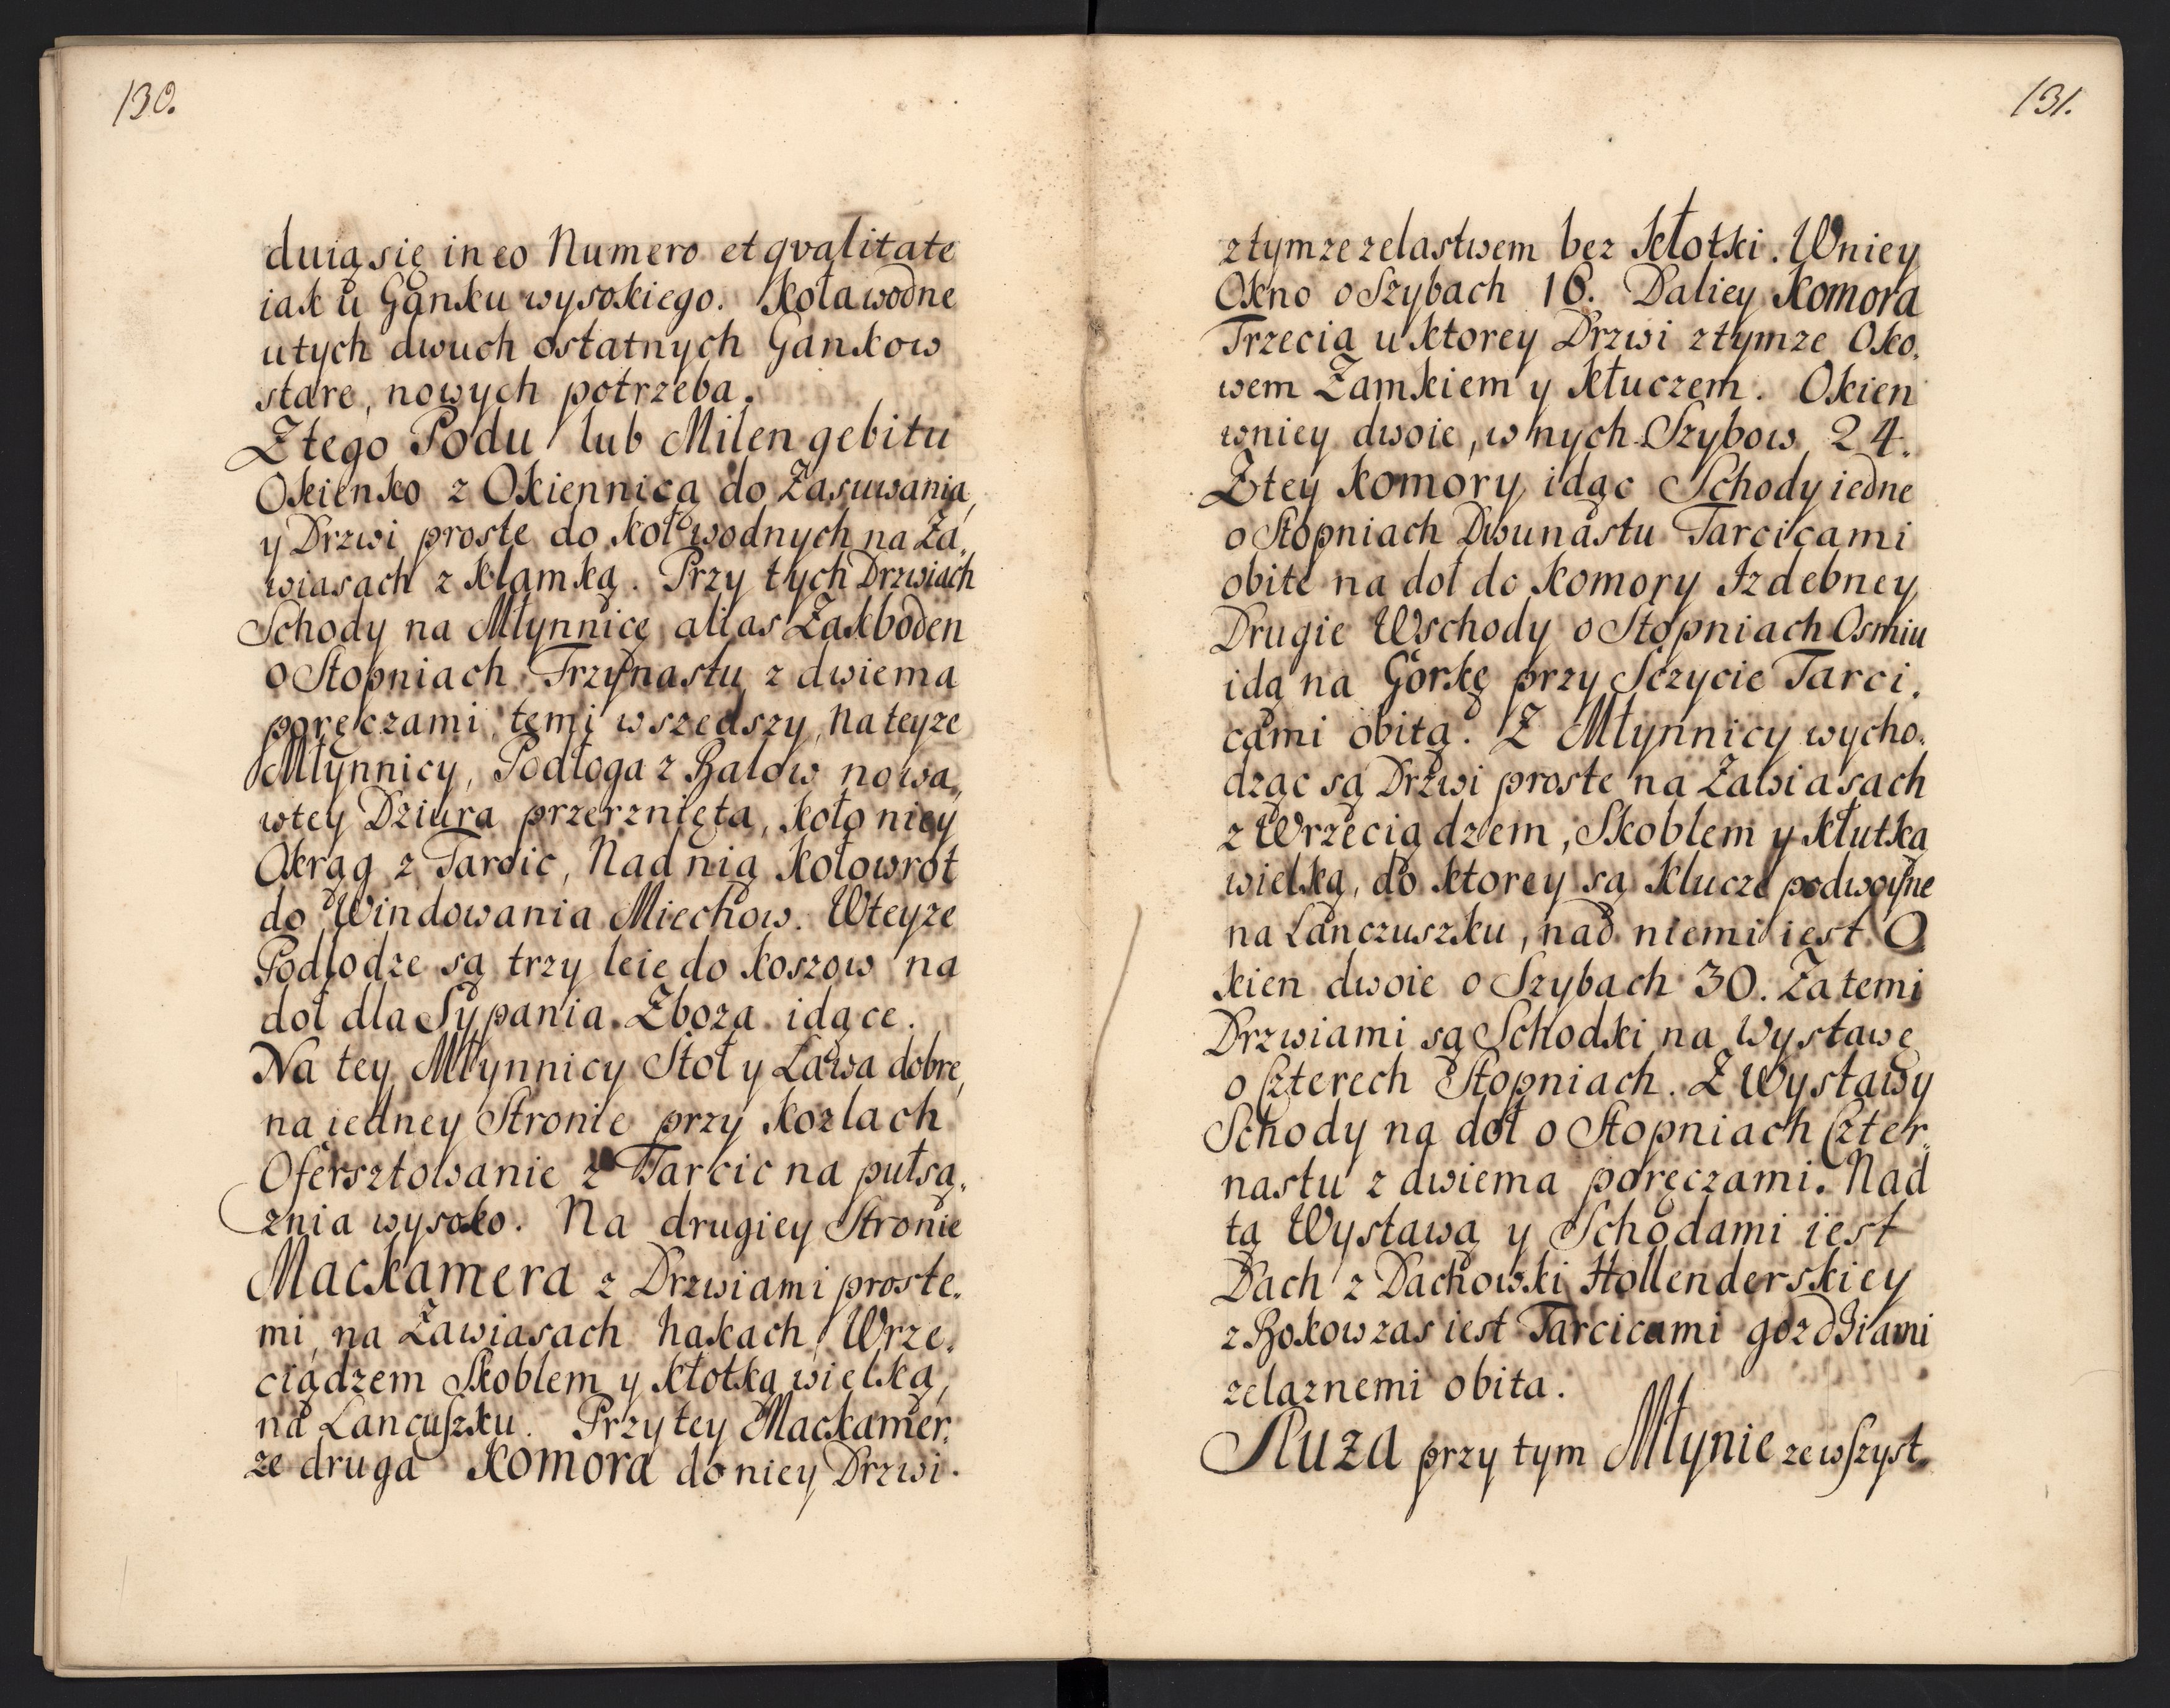 130.
duią się in eo Numero et qvalitate
iak u Ganku wysokiego. Koła wodne
u tych dwuch ostatnych Gankow
stare, nowych potrzeba.
Z tego Podu lub Milen gebitu
Okienko z Okiennicą do Zasuwania,
y Drzwi proste do koł wodnych na Za„
wiasach z klamką. Przy tych Drzwiach
Schody na Młynnicę alias Zakboden
o Stopniach Trzynastu z dwiema
poręczami, temi wszedszy, na teyze
Młynnicy, Podłoga z Balow nowa„
w tey Dziura przerznięta, koło niey
Okrąg z Tarcic, Nad nią kołowrot
do Windowania Miechow. W teyze
Podłodze są trzy leie do koszow na
doł dla Sypania Zboza idące.
Na tey Młynnicy Stoł y Ława dobre,
na iedney Stronie przy kozlach
Ofersztowanie z Tarcic na pułsą„
znia wysoko. Na drugiey Stronie
Mackamera z Drzwiami proste.
mi, na Zawiasach hakach, Wrze.
ciądzem Skoblem y kłotką wielką,
na Lancuszku. Przy tey Mackamer.
ze druga Komora do niey Drzwi.
131.
z tymze zelastwem bez kłotki. W niey
Okno o Szybach 16. Daliey Komora
Trzecia u ktorey Drzwi z tymze Oko.
wem Zamkiem y kłuczem. Okien
w niey dwoie, w nych Szybow 24.
Z tey Komory idąc Schody iedne
o Stopniach Dwunastu Tarcicami
obite na doł do Komory Izdebney
Drugie Wschody o Stopniach Osmiu
idą na Gorkę przy Sczycie Tarci.
cami obitą. Z Młynnicy wycho.
dząc są Drzwi proste na Zawiasach
z Wrzeciądzem, Skoblem y kłutką
wielką, do ktorey są klucze podwoyne
na Lanczuszku, nad niemi iest O
kien dwoie o Szybach 30. Za temi
Drzwiami są Schodki na Wystawę
o Czterech Stopniach. Z Wystawy
Schody na doł o Stopniach Czter„
nastu z dwiema poręczami. Nad
tą Wystawą y Schodami iest
Dach z Dachowki Hollenderskiey
z Bokow zas iest Tarcicami gozdziami
zelaznemi obita.
Sluza przy tym Młynie ze wszyst„